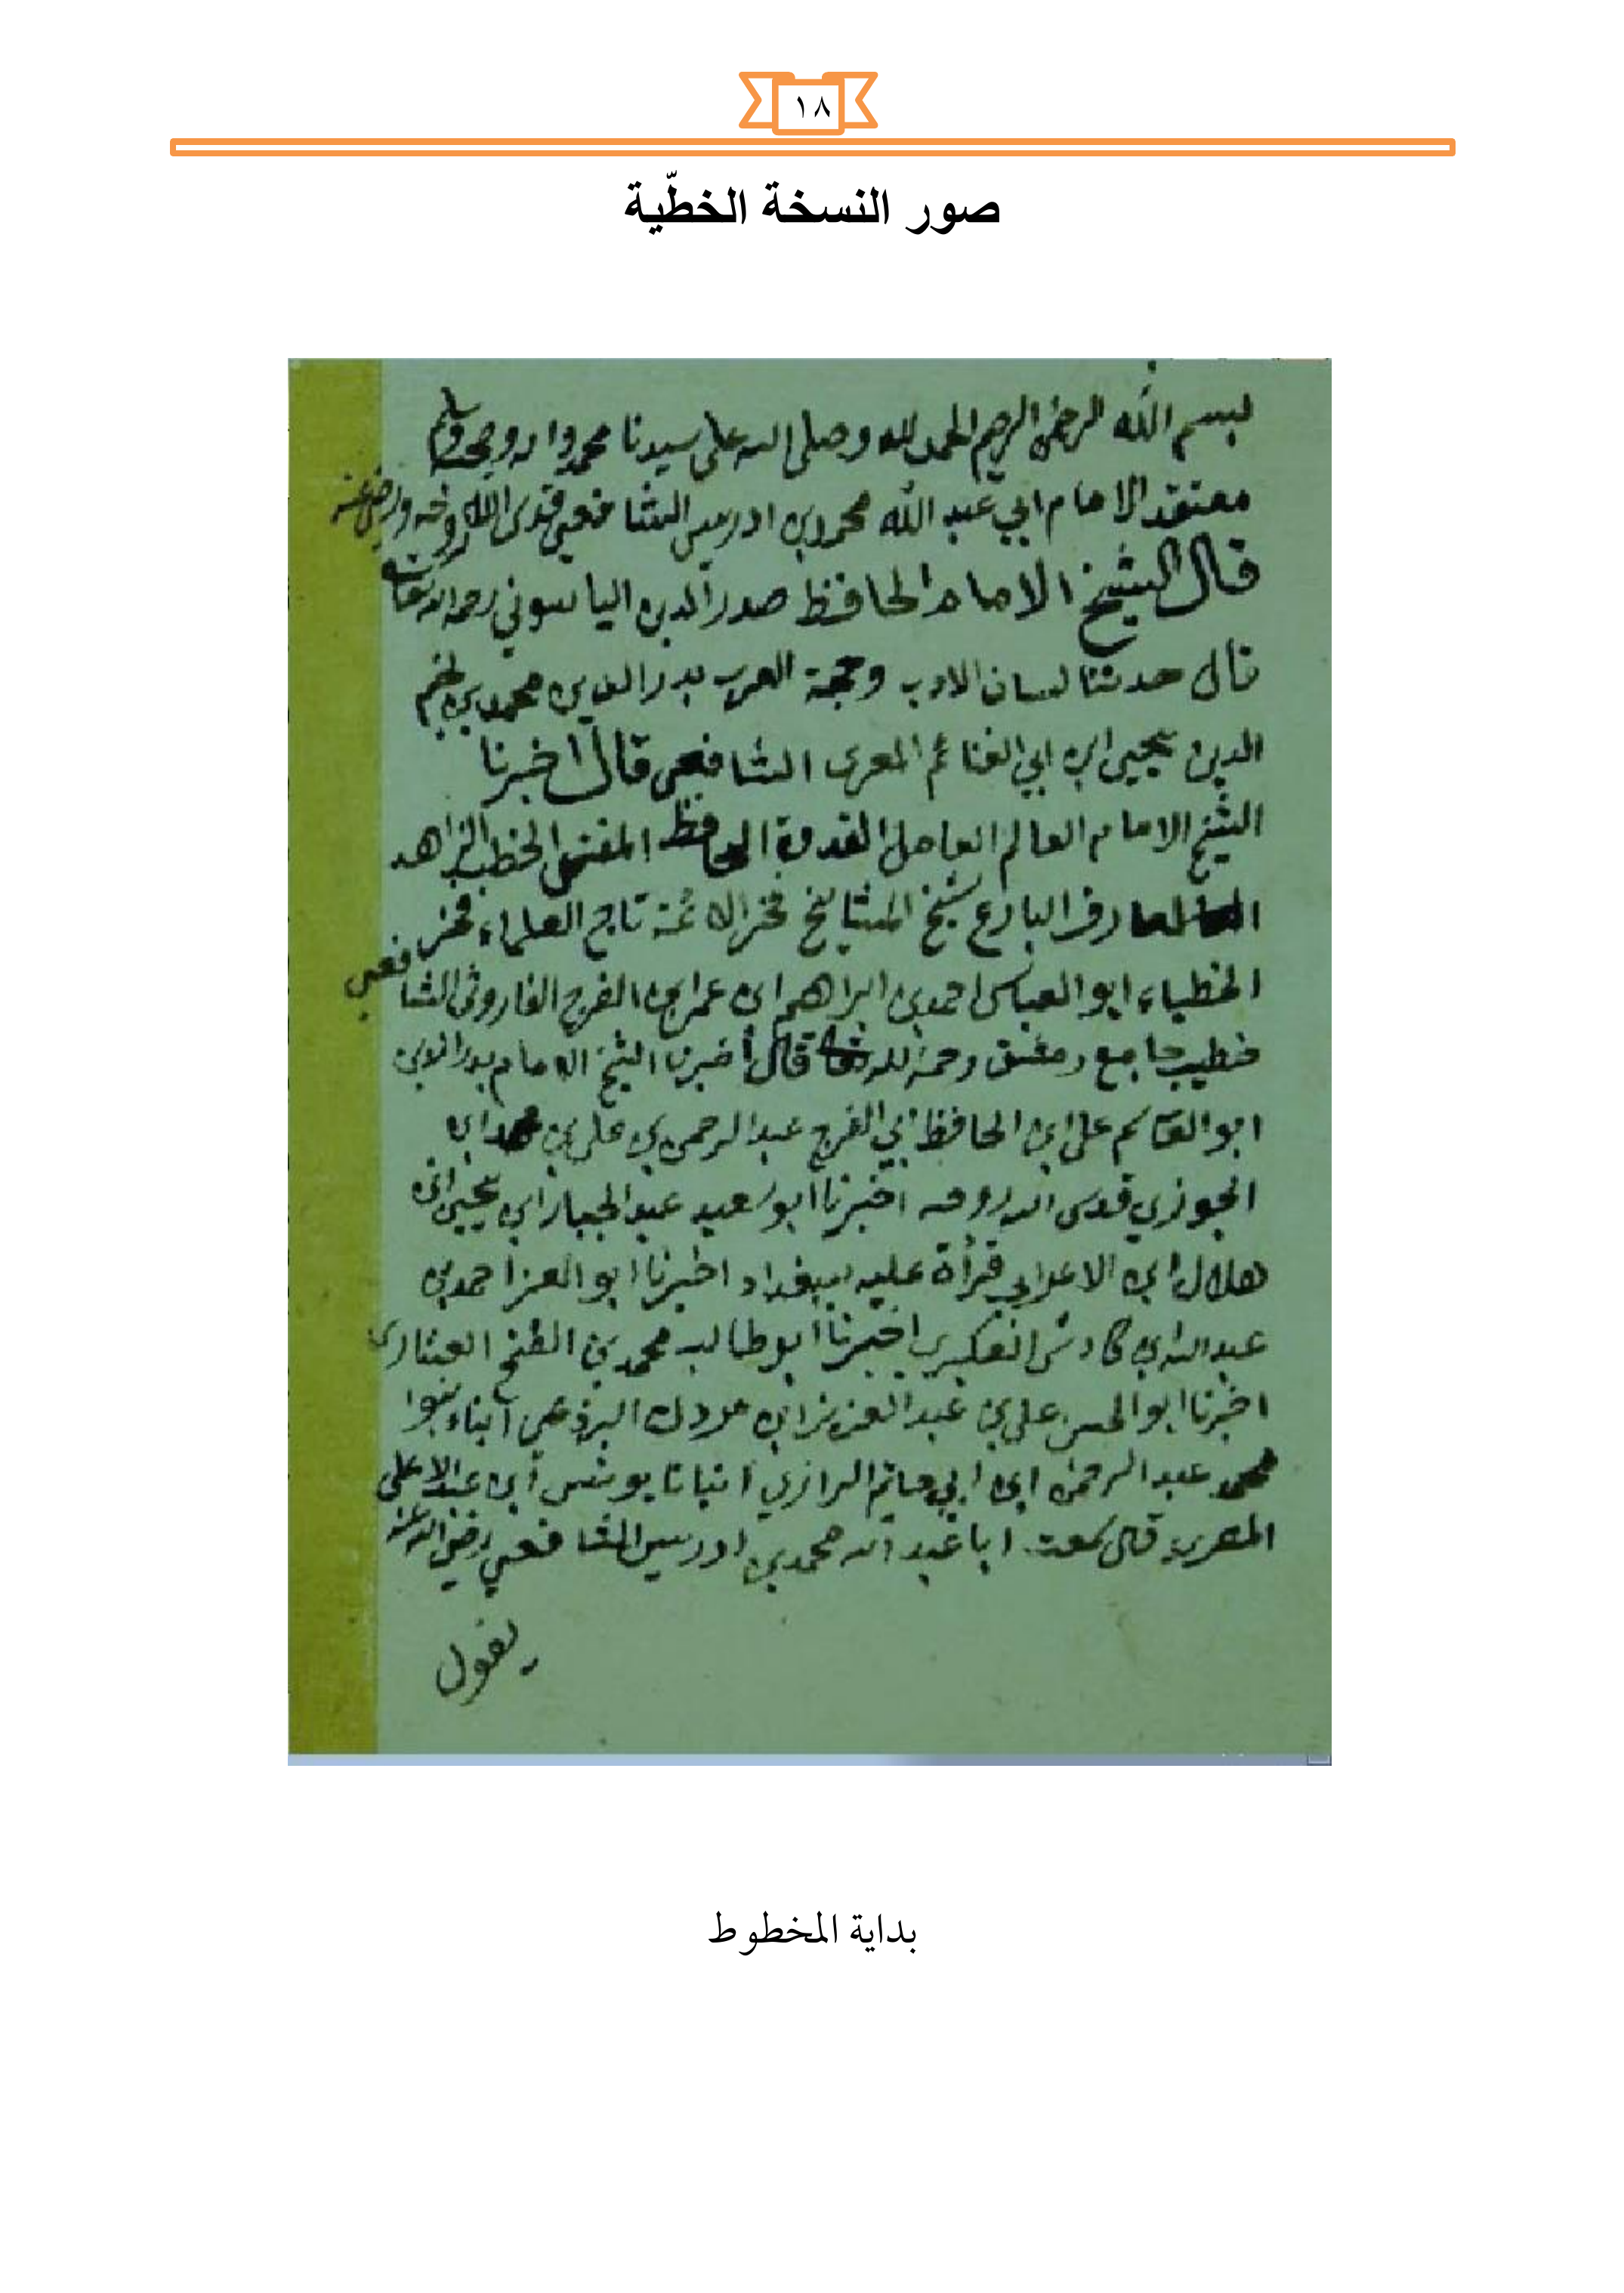 ١٨
صور النسخة الخطّية
بسم الله الرحمن الرحيم الحمد لله وصلى الله على سيدنا محمد واله وصحبه وسلم
معتقد الامام ابي عبد الله محمد بن ادريس الشافعي قدس الله روحه ورضي عنه
قال الشيخ الامام الحافظ صدر الدين الياسوني رحمه الله تعالى
قال حدثنا لسان الادب وحجة العرب بدر الدين محمد بن نجم
الدين يحيى ابن ابي الغنائم المعرى الشافعي قال اخبرنا
الشيخ الامام العالم العامل القدوة الحافظ المفتى الخطيب الزاهد
العارف البارع شيخ المشايخ فخر الائمة تاج العلماء فخر
الخطباء ابو العباس احمد بن ابراهيم ابن عمر ابن الفرج الفاروثى الشافعي
خطيب جامع دمشق رحمة الله قال أخبرنا الشيخ الامام بدر الدين
ابو القاسم على ابن الحافظ ابي الفرج عبد الرحمن بن على بن محمد ابن
الجوزي قدس الله روحه اخبرنا ابو سعيد عبد الجبار ابن يحيى ابن
هلال ابن الاعرابي قرأة عليه ببغداد اخبرنا ابو العز احمد بن
عبد الله ابن كادش العكبري اخبرنا ابو طالب محمد بن الفتح العشارى
اخبرنا ابو الحسن على بن عبد العزيز ابن مردك البرذعي أنباء بنوا
محمد عبد الرحمن ابن ابي حاتم الرازي أنبانا يونس أبن عبد الاعلى
المصري قال سمعت ابا عبد الله محمد بن ادريس الشافعي رضي الله عنه
يقول
بداية المخطوط